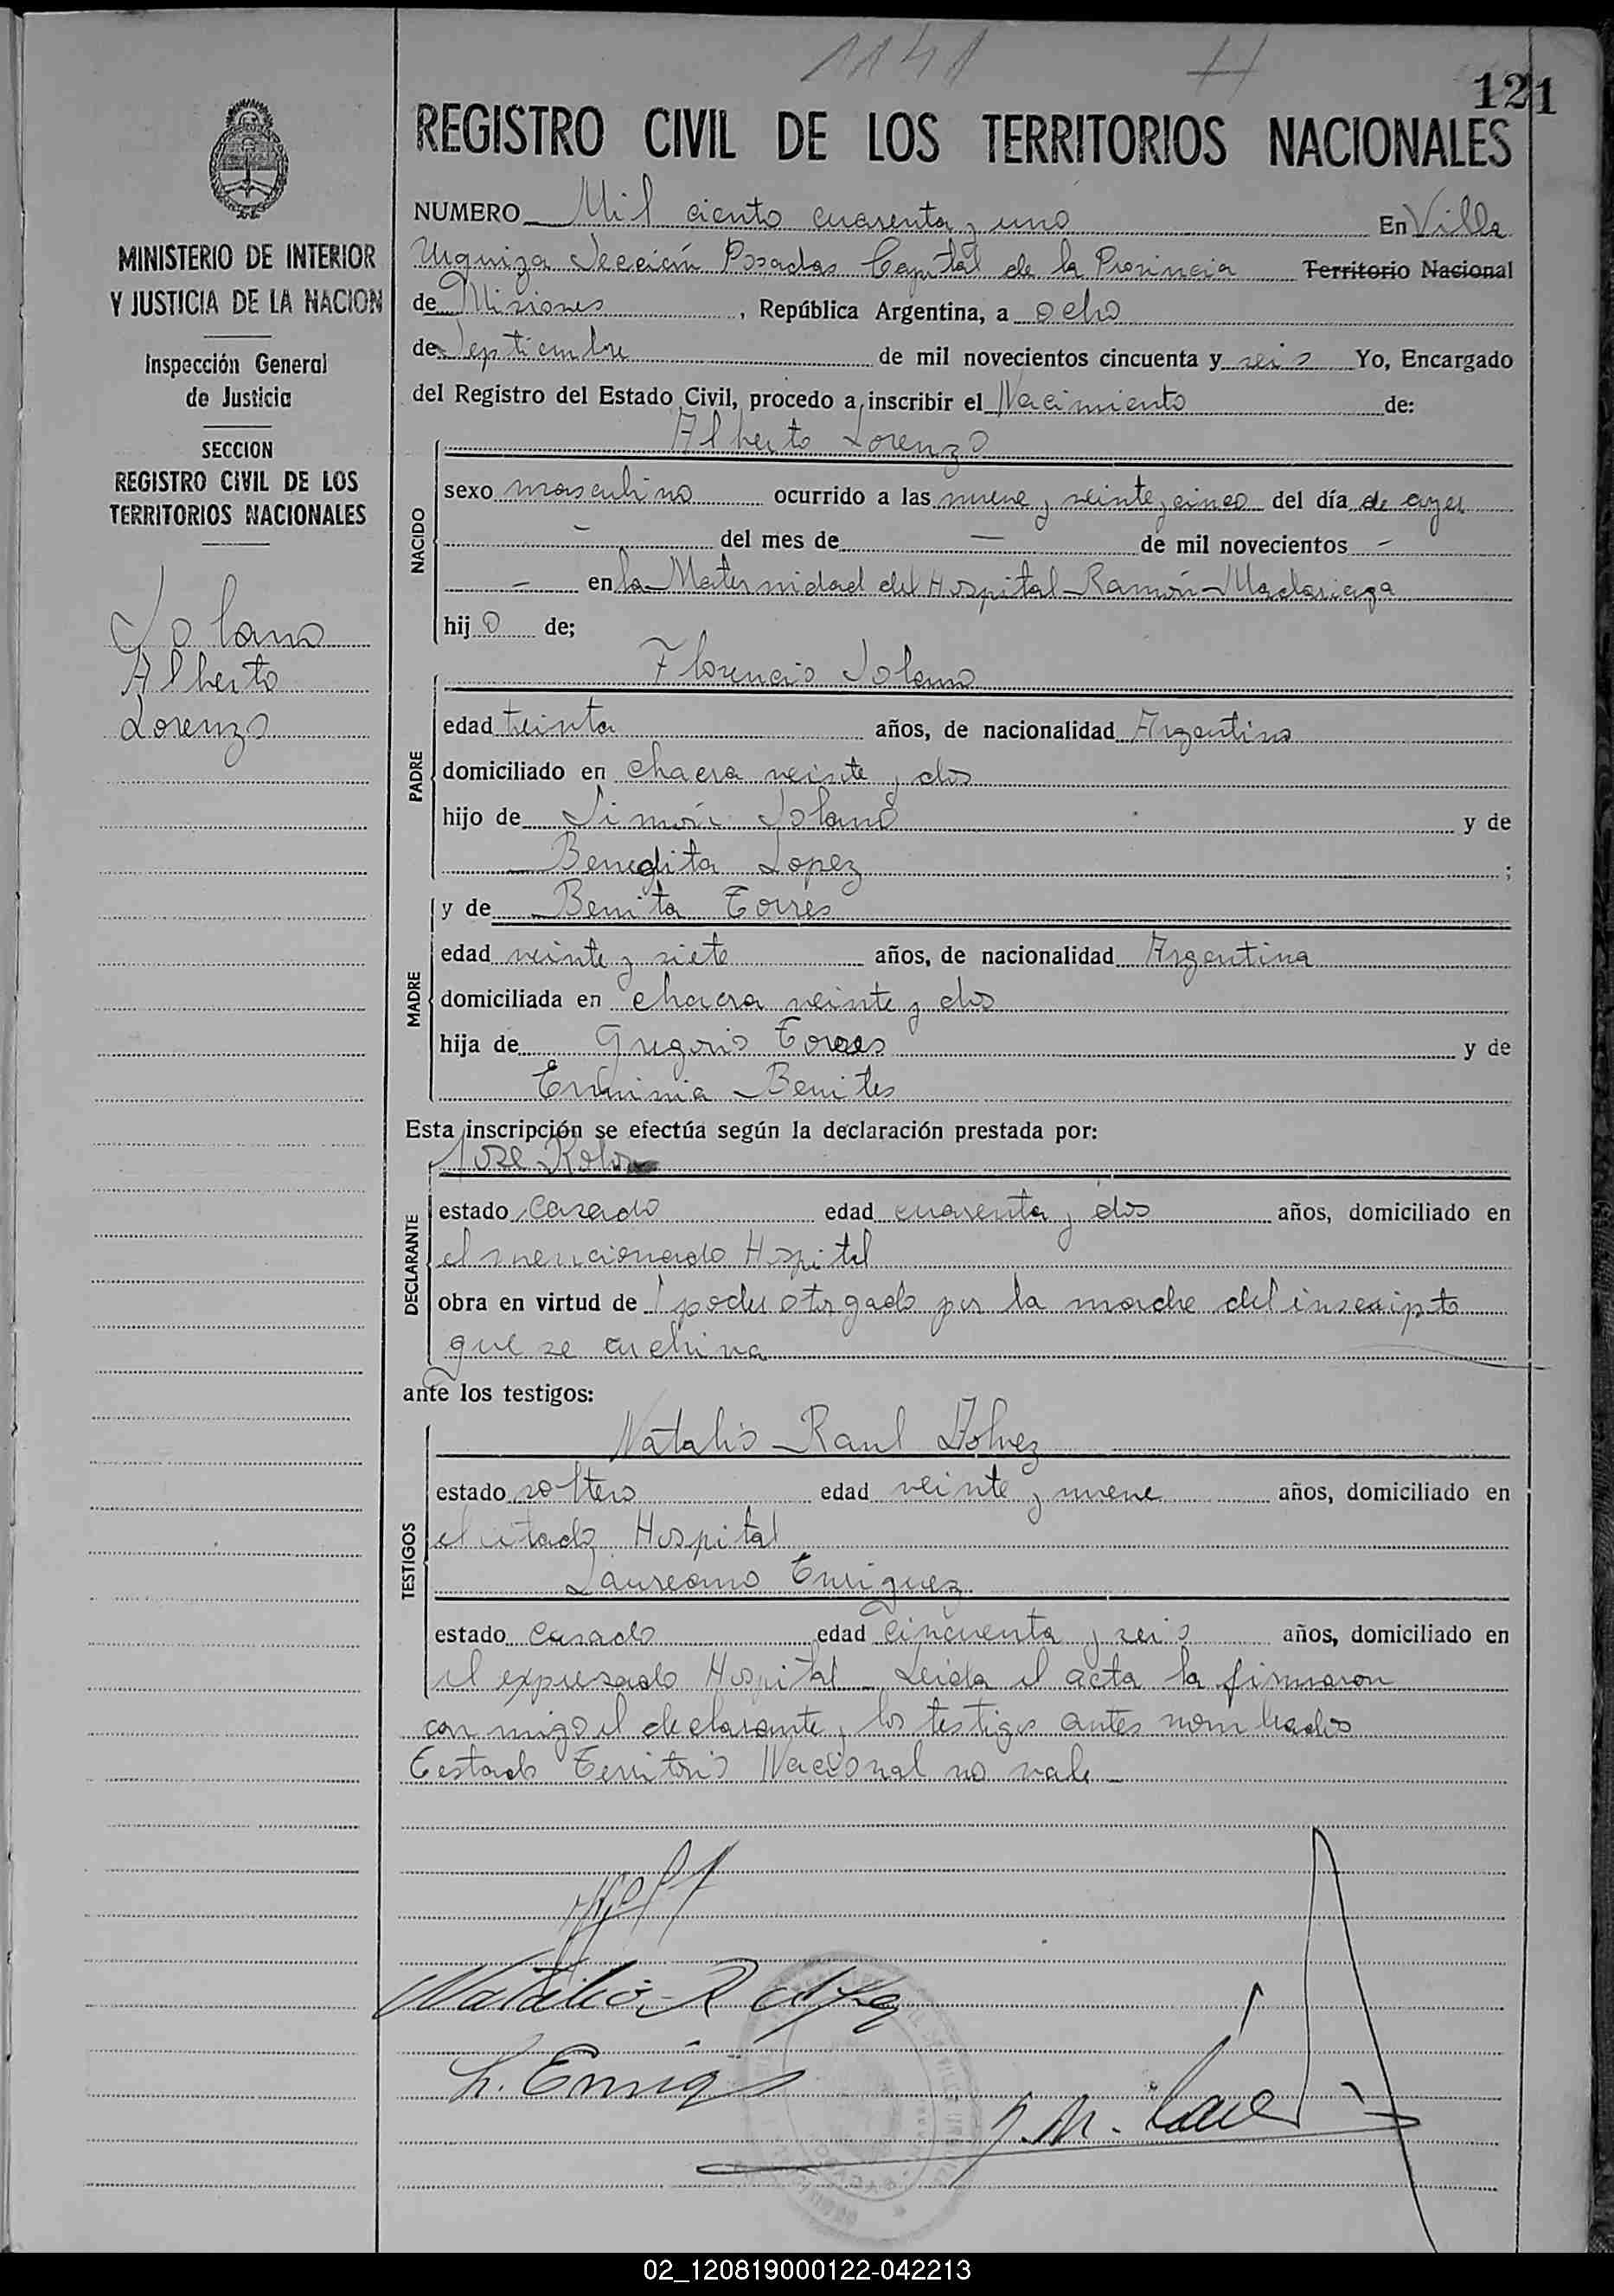 1141
121
REGISTRO CIVIL DE LOS TERRITORIOS NACIONALES
MINISTERIO DE INTERIOR
Y JUSTICIA DE LA NACION
Inspección General
de Justicia
SECCION
REGISTRO CIVIL DE LOS
TERRITORIOS NACIONALES
Solano
Alberto
Lorenzo
NUMERO Mil ciento cuarenta y uno En Villa
Urquiza Sección Posadas Capital de la Provincia Territorio Nacional
de Misiones, República Argentina, a ocho
de Septiembre de mil novecientos cincuenta y seis Yo, Encargado
del Registro del Estado Civil, procedo a inscribir el Nacimiento de:
Alberto Lorenzo
NACIDO
sexo masculino ocurrido a las nueve y veinte y cinco del día de ayer
— del mes de — de mil novecientos —
— en la Maternidad del Hospital Ramón Madariaga
hijo de;
Florencio Solano
PADRE
edad treinta años, de nacionalidad Argentino
domiciliado en chacra veinte y dos
hijo de Simón Solano y de
Benedita Lopez ;
y de Benita Torres
MADRE
edad veinte y siete años, de nacionalidad Argentina
domiciliada en chacra veinte y dos
hija de Gregorio Torres y de
Erminia Benites
Esta inscripción se efectúa según la declaración prestada por:
José
DECLARANTE
estado casado edad cuarenta y dos años, domiciliado en
el mencionado Hospital
obra en virtud de poder otorgado por la madre del inscripto
que se archiva
ante los testigos:
Natalio Raul
TESTIGOS
estado soltero edad veinte y nueve años, domiciliado en
el citado Hospital
Laureano Enriquez
estado casado edad cincuenta y seis años, domiciliado en
el expresado Hospital Leida el acta la firmaron
conmigo el declarante y los testigos antes nombrados
Testado Territorio Nacional no vale
Natalio R
L. Enriq
02_120819000122-042213